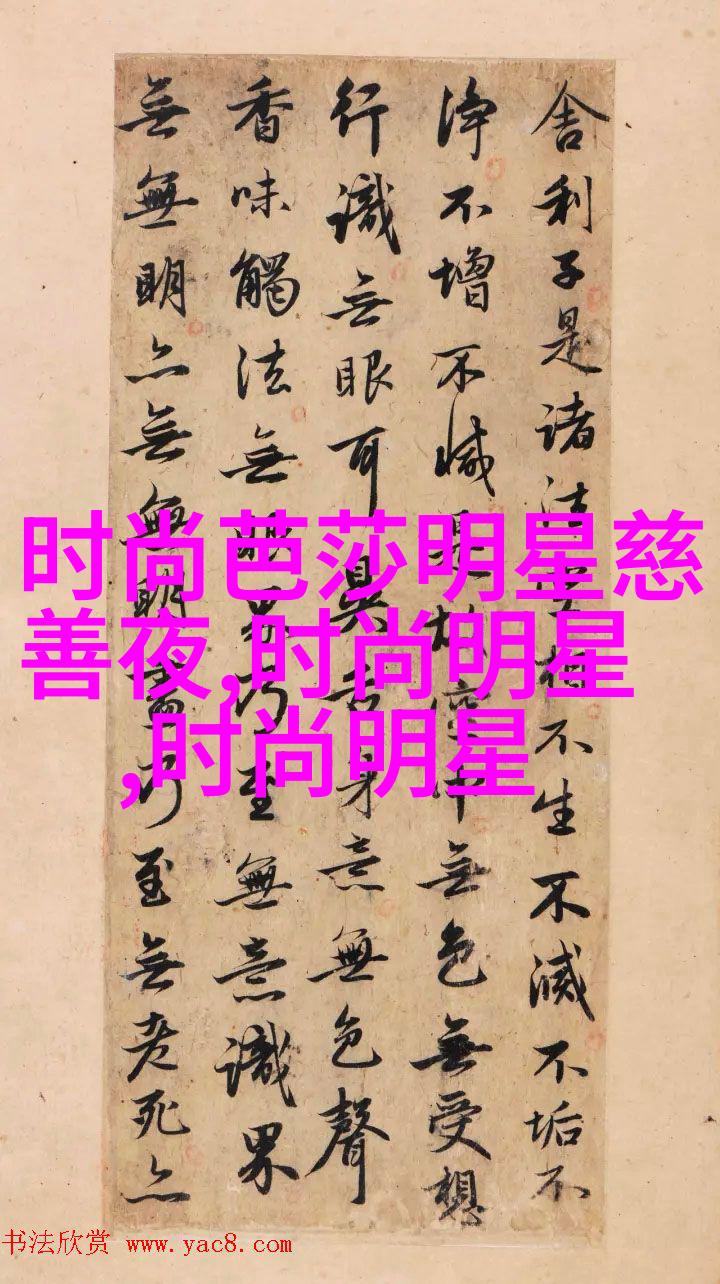 舍利子是諸法空相不生不滅不垢不
淨不增不減是故空中無色無受想
行識無眼耳鼻舌身意無色聲
香味觸法無眼界乃至無意識界
無無明亦無無明盡乃至無老死亦
时尚芭莎明星慈
善夜,时尚明星
,时尚明星
书法欣赏 www.yac8.com